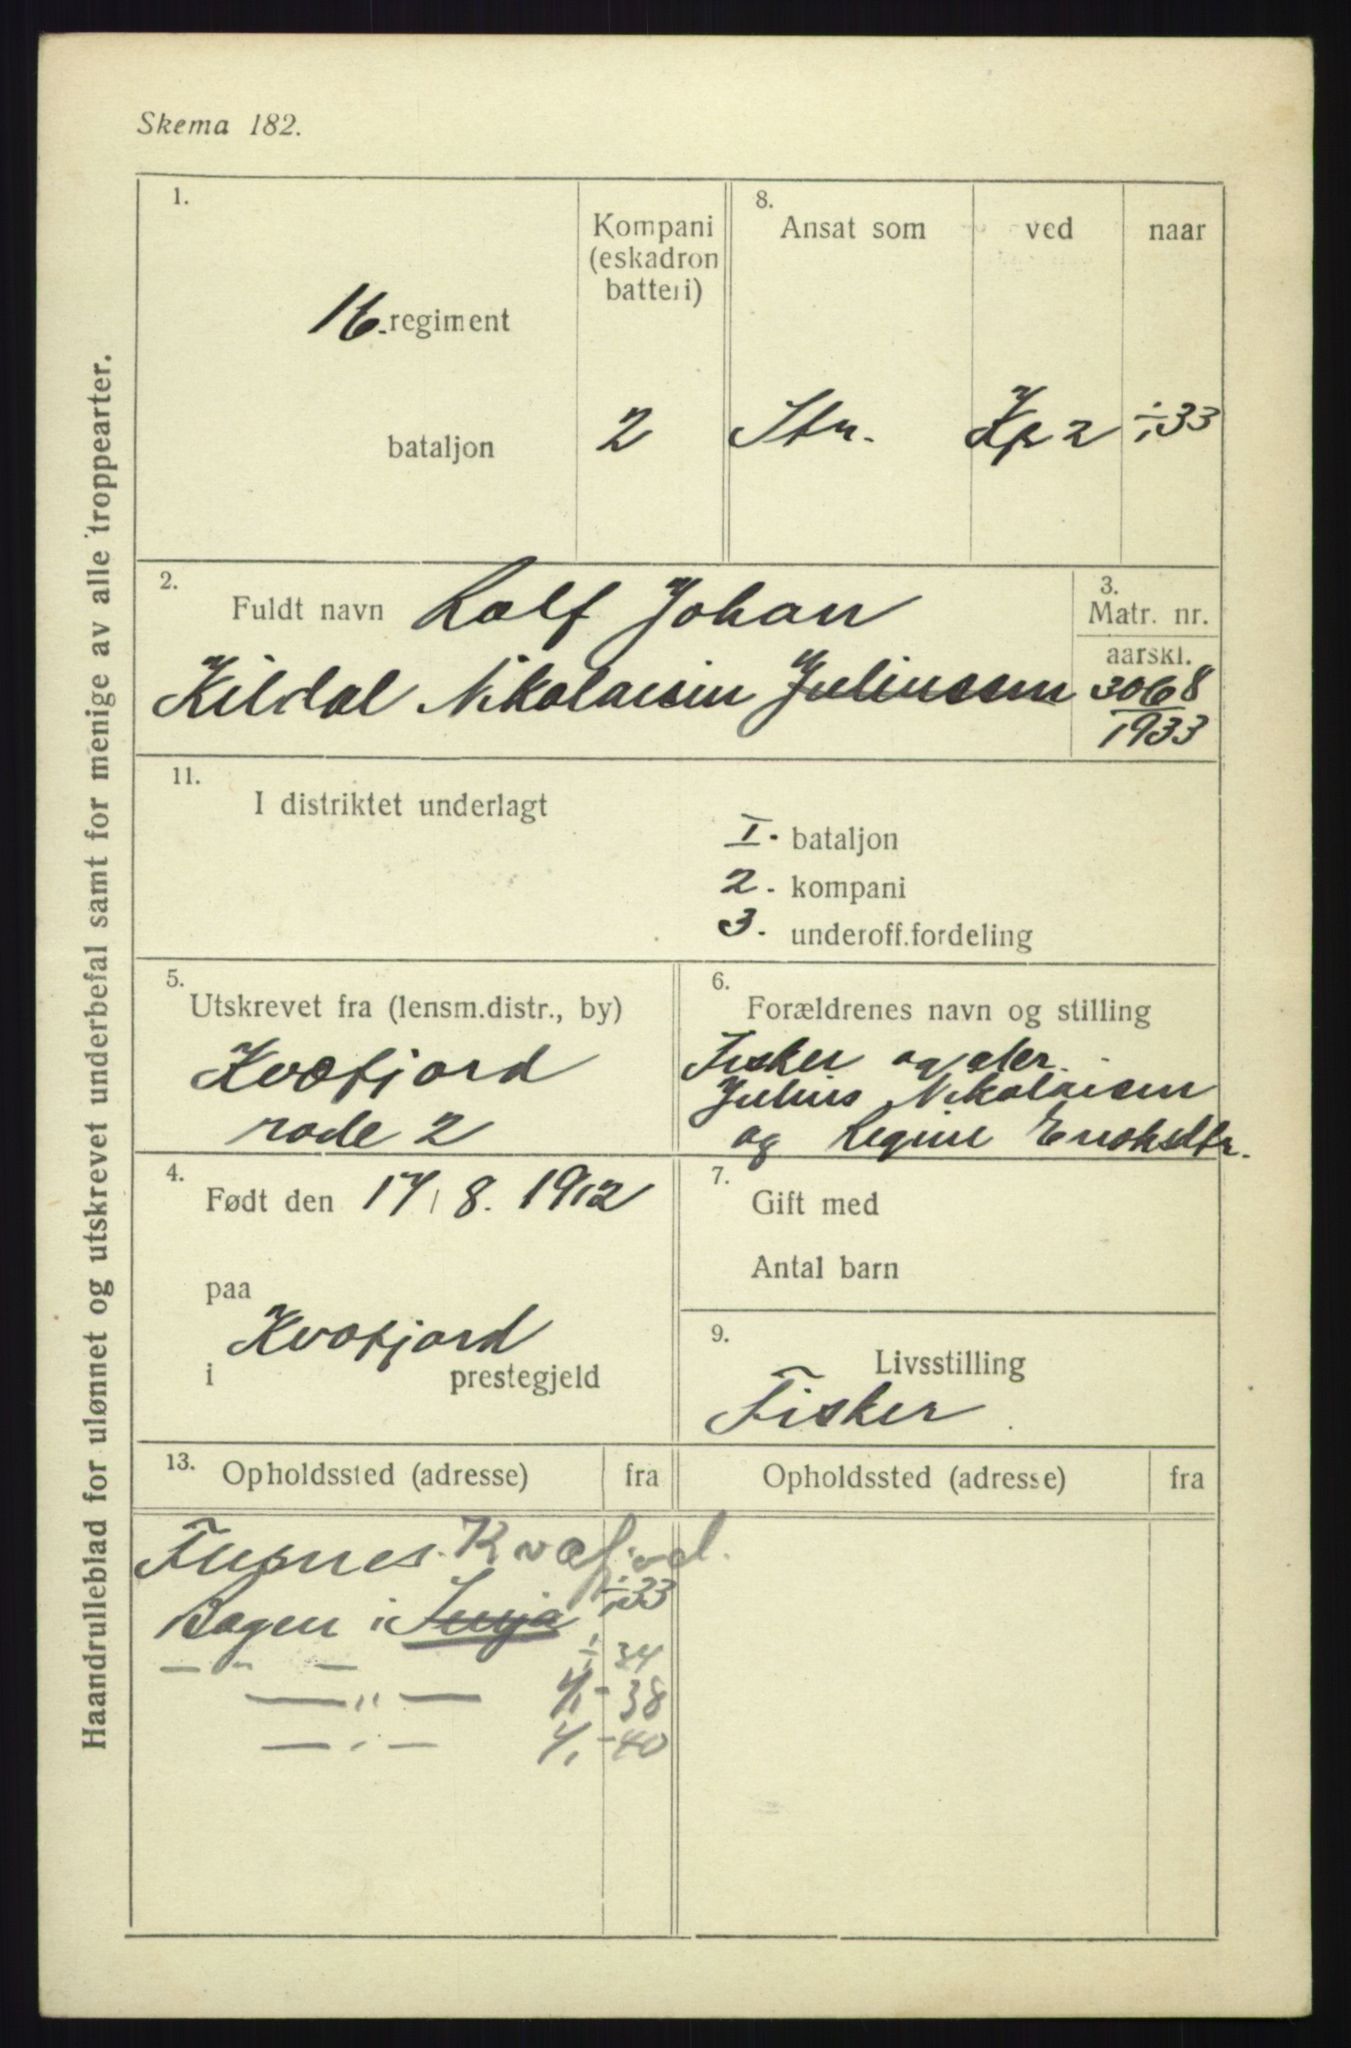 Skema 182.
Haandrulleblad for ulønnet og utskrevet underbefal samt for menige av alle troppearter.
1.
16. regiment
bataljon
Kompani
(eskadron
batteri)
2
8.
Ansat som ved naar
Str. Kp 2 1/1 33
2.
Fuldt navn Rolf Johan
Kildal Nikolaisen Juliussen
3.
Matr. nr.
aarskl.
3068
1933
11.
I distriktet underlagt
I. bataljon
2. kompani
3. underoff.fordeling
5.
Utskrevet fra (lensm.distr., by)
Kvæfjord
rode 2
6.
Forældrenes navn og stilling
Fisker og
Julius Nikolaisen
og Regine
4.
Født den 17/8. 1912
paa
Kvæfjord
i prestegjeld
7.
Gift med
Antal barn
9.
Livsstilling
Fisker
13.
Opholdssted (adresse) fra
Opholdssted (adresse) fra
Kvæfjord.
1/1 33
Bogen i Senja
— - — 1/1 34
— „ — 1/1 - 38
— „ — 1/1 - 40